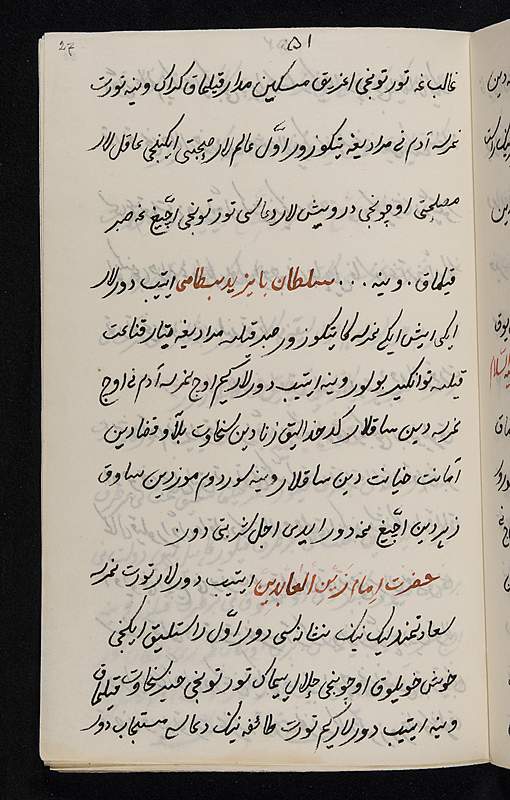 27 ۵۱
غالب غه تورتونجی اغریق مسکین مدار قیلماق کراک وینه تورت
نمرسه آدم نی مرادیغه یتکوزور اوّل عالم لار صحبتی ایکنجی عاقل لار
مصلحتی اوچونجی درویش لار دعاسی تورتونجی اچیغ غه صبر
قیلماق . وینه ... سلطان بایزید بسطامی ایتیب دورلار
ایکی ایش ایکی نمرسه کا یتکوزور صبر قیلسه مرادیغه یتار قناعت
قیلسه توانکیر بولور وینه ایتیب دورلارکیم اوچ نمرسه آدم نی اوچ
نمرسه دین ساقلار کدخدالیق زنا دین سخاوت بلا و قضادین
آمانت خیانت دین ساقلار وینه سوردوم موزدین ساوق
زهردین اچیغ نمه دور ایدی اجل شربتی دور
حضرت امام زین العابدین ایتیب دورلار تورت نمرسه
سعادتمندلیک نیک نشانه سی دور اوّل راستلیق ایکنجی
خوش خویلوق اوچونجی حلال یماک تورتونجی خیر سخاوت قیلماق
وینه ایتیب دورلارکیم تورت طائفه نیک دعاسی مستجاب دور